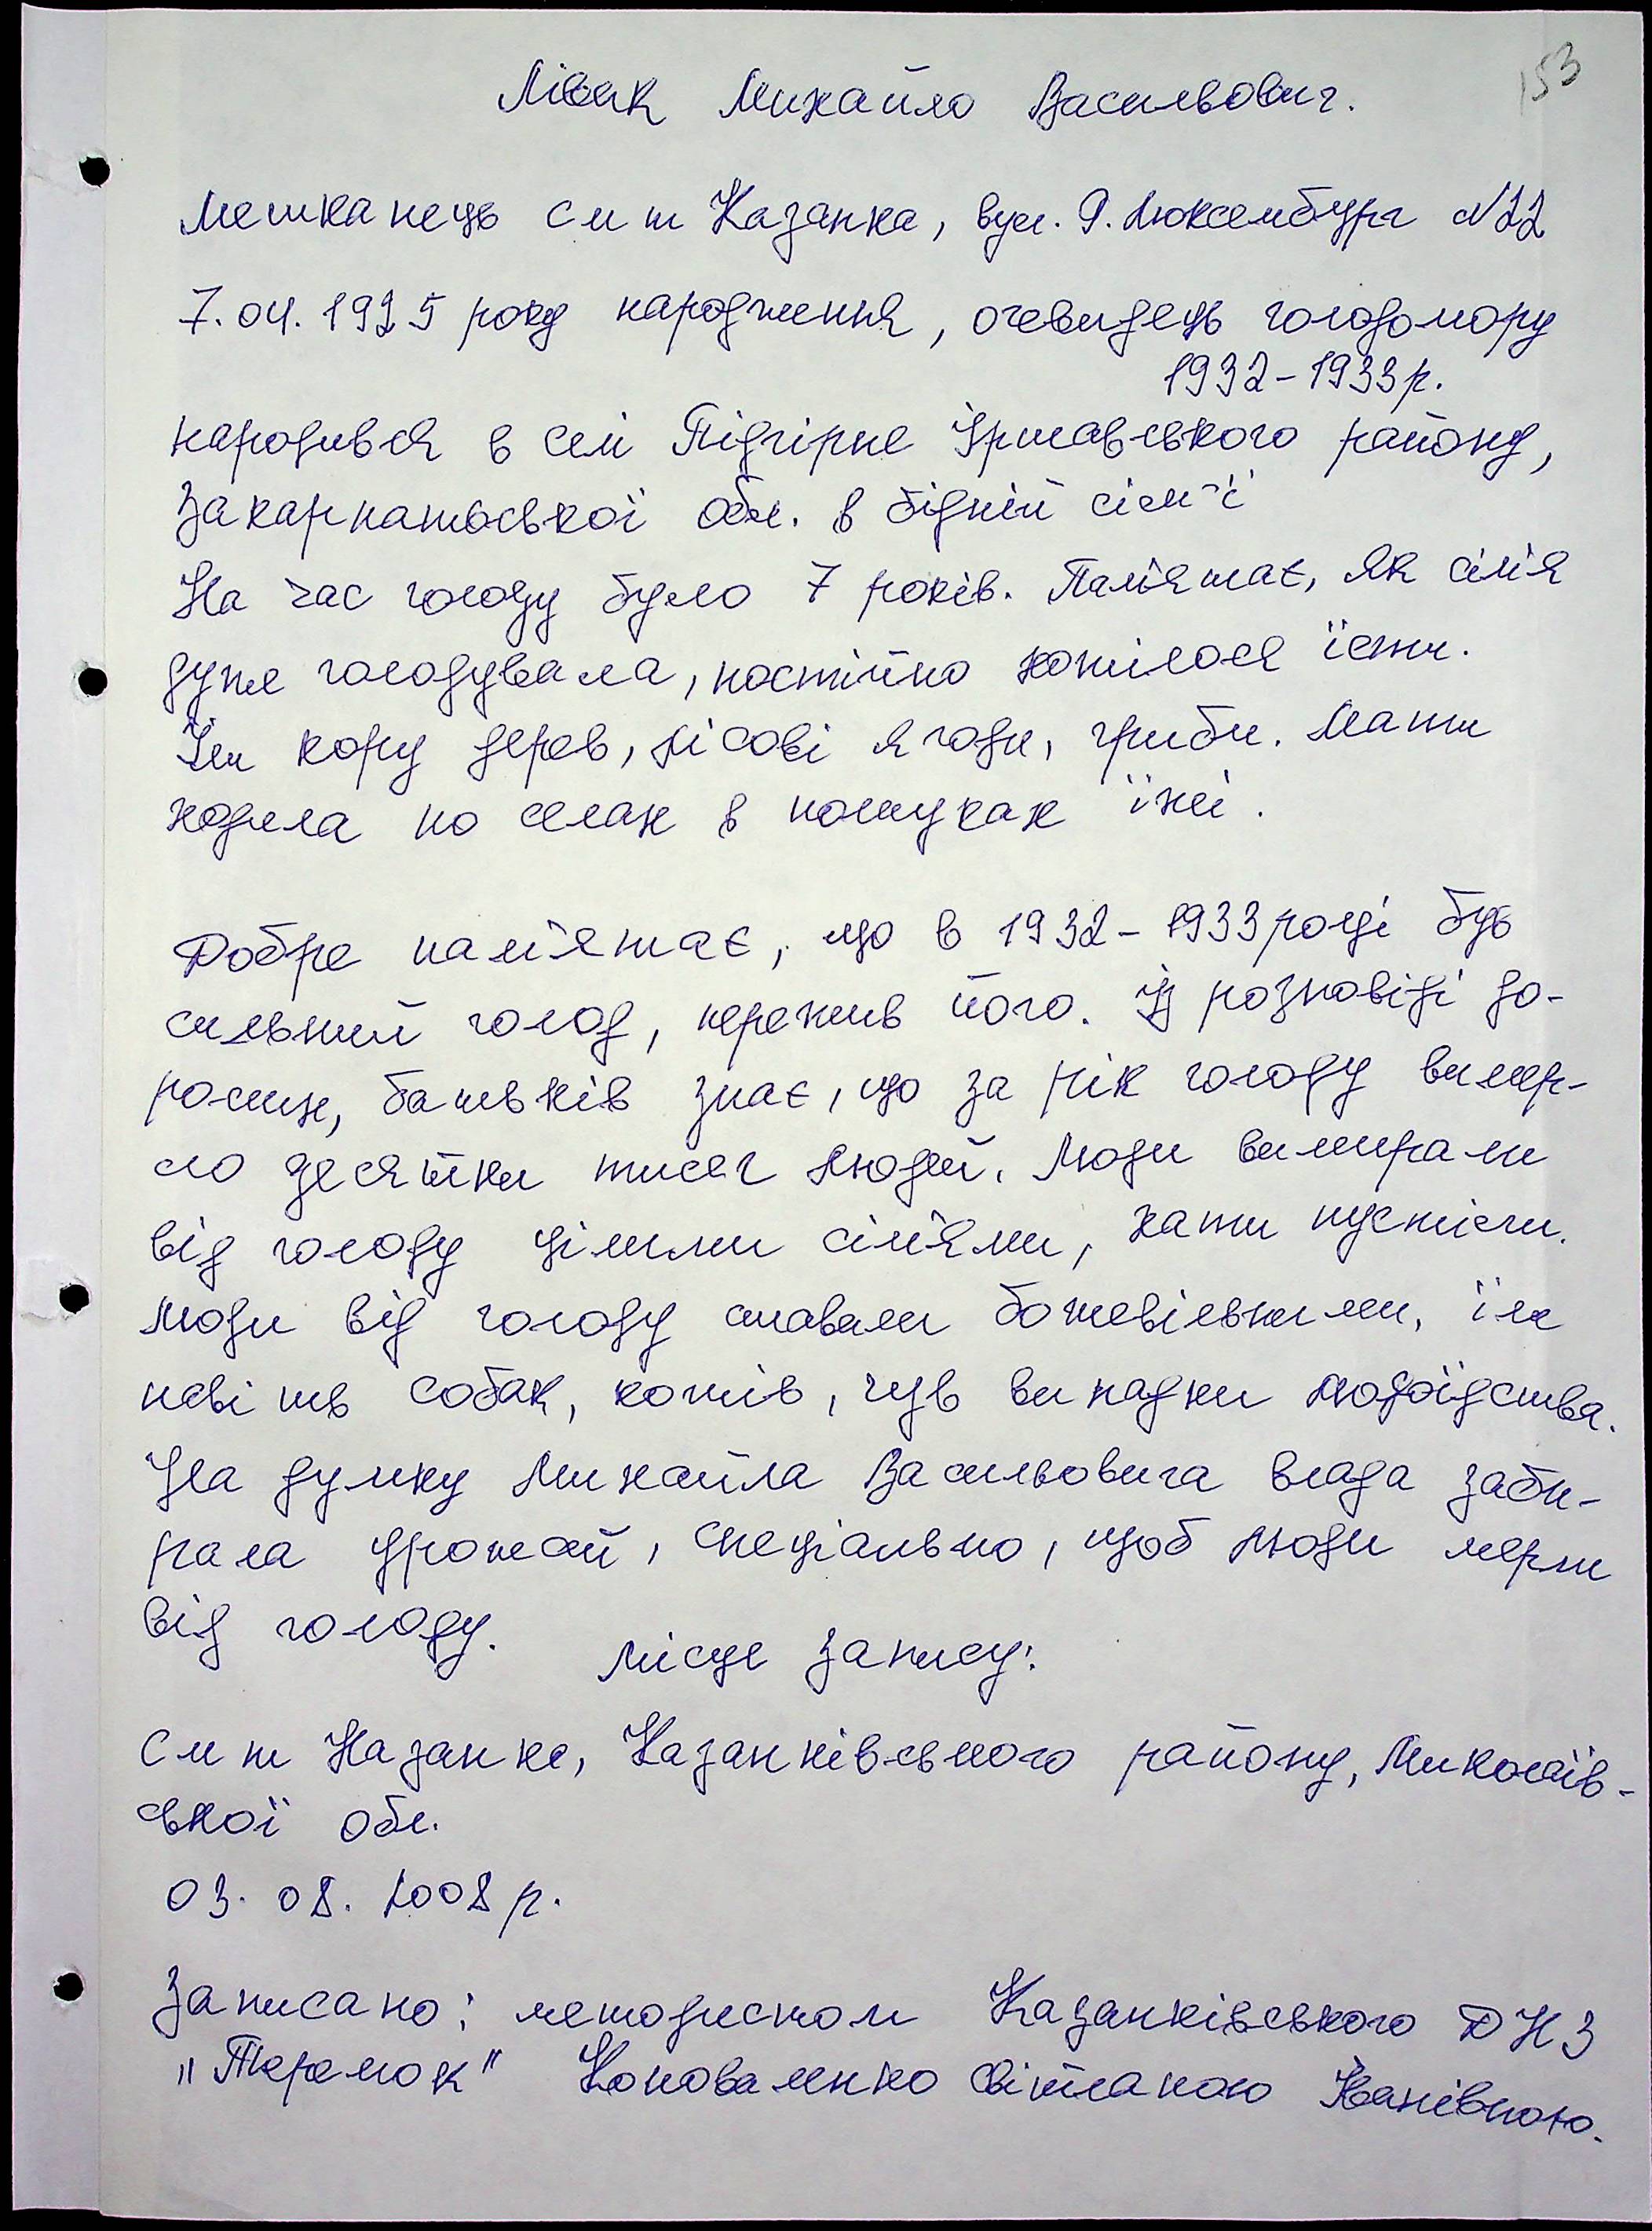 153
Лівак Михайло Васильович.
Мешканець смт Казанка, вул. Р. Люксембург №22
7.04.1925 року народження, очевидець голодомору
1932-1933р.
народився в селі Підгірне Іршавського району,
Закарпатської обл. в бідній сім'ї
На час голоду було 7 років. Пам'ятає, як сім'я
дуже голодувала, постійно хотілося їсти.
Їли кору дерев, лісові ягоди, гриби. Мати
ходила по селах в пошуках їжі.
Добре пам'ятає, що в 1932-1933році був
сильний голод, пережив його. Із розповіді до-
рослих, батьків знає, що за рік голоду вимер-
ло десятки тисяч людей. Люди вимирали
від голоду цілими сім'ями, хати пустіли.
Люди від голоду ставали божевільними, їли
навіть собак, котів, чув випадки людоїдства.
На думку Михайла Васильовича влада заби-
рала урожай, спеціально, щоб люди мерли
від голоду.
Місце запису:
смт Казанка, Казанківського району, Миколаїв-
ської обл.
03.08.2008р.
Записано: методистом Казанківського ДНЗ
"Теремок" Коноваленко Світланою Іванівною.